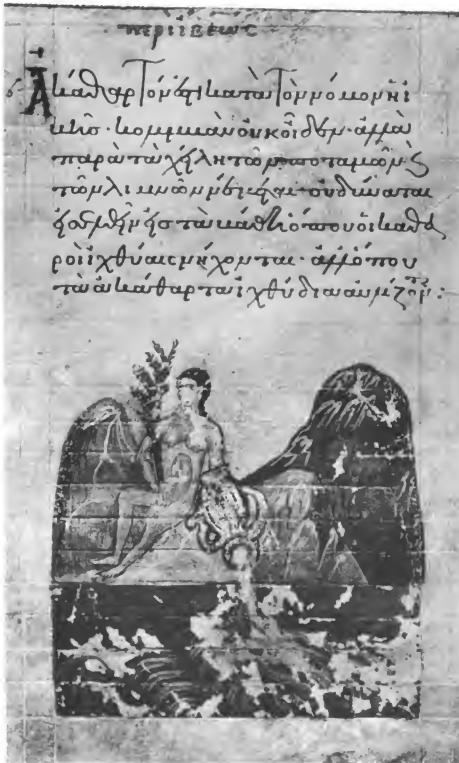 περὶ ἴβεως
Ἀκάθαρτόν ἐστι κατὰ τὸν νόμον ἡ ἴ
βις · κολυμβᾶν οὐκ οἶδεν · ἀλλὰ
παρὰ τὰ χήλη τῶν ποταμῶν ϗ
τῶν λιμνῶν · οὐ δύναται
εἰς τὰ βάθι ὅπου οἱ καθα
ροὶ ἰχθύαις νήχονται · ἀλλ ὅπου
τὰ ἀκάθαρτα ἰχθύδια :